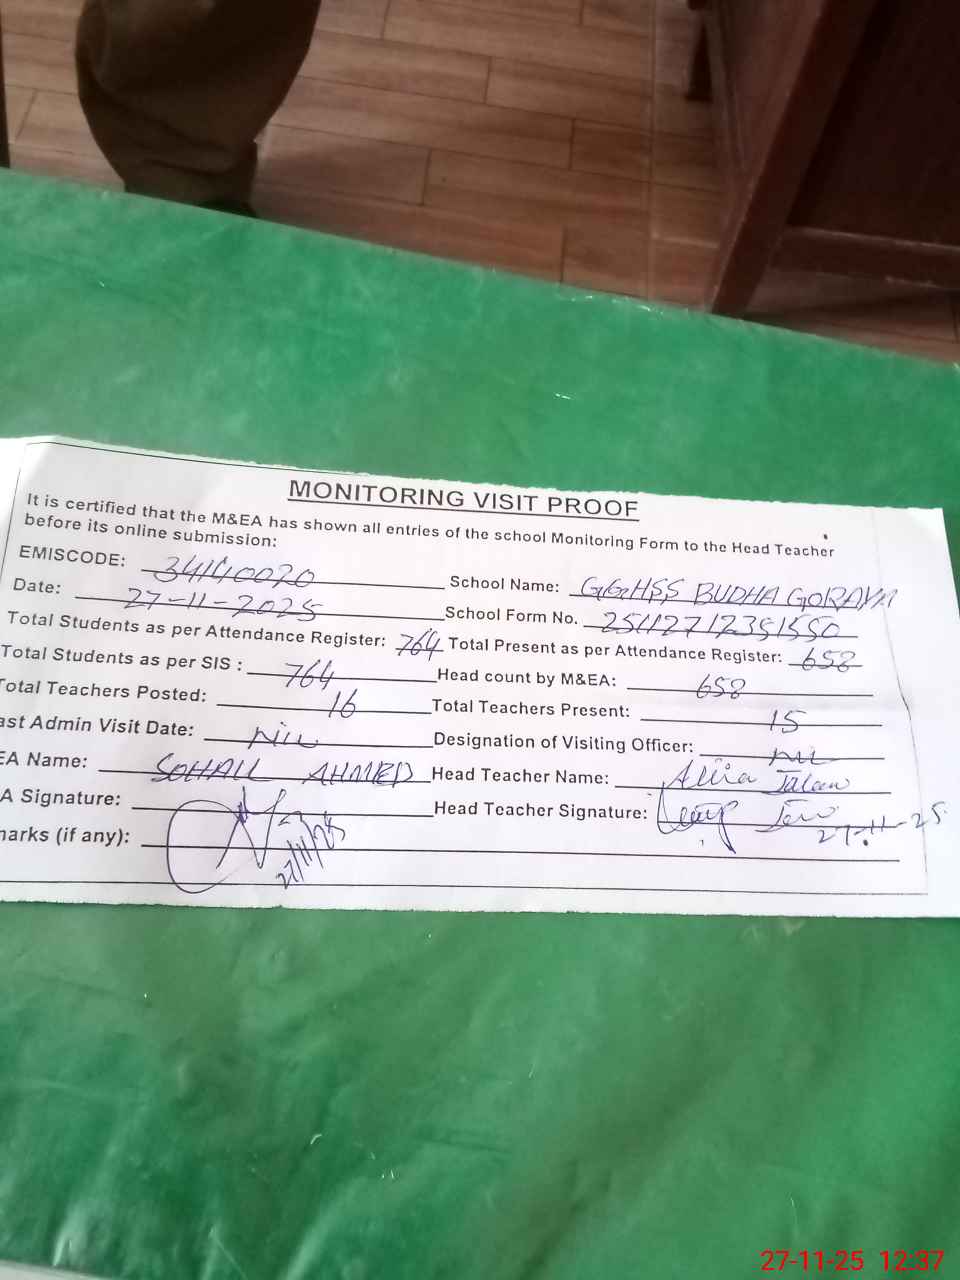 MONITORING VISIT PROOF
It is certified that the M&EA has shown all entries of the school Monitoring Form to the Head Teacher
before its online submission:
EMISCODE: 34140020 School Name: GGHSS BUDHA GORAYA
Date: 27-11-2025 School Form No. 25112712351550
Total Students as per Attendance Register: 764 Total Present as per Attendance Register: 658
Total Students as per SIS : 764 Head count by M&EA: 658
Total Teachers Posted: 16 Total Teachers Present: 15
ast Admin Visit Date: Nil Designation of Visiting Officer: Nil
EA Name: SOHAIL AHMED Head Teacher Name:
A Signature: Head Teacher Signature:
27/11/25 27-11-25
narks (if any):
27-11-25 12:37